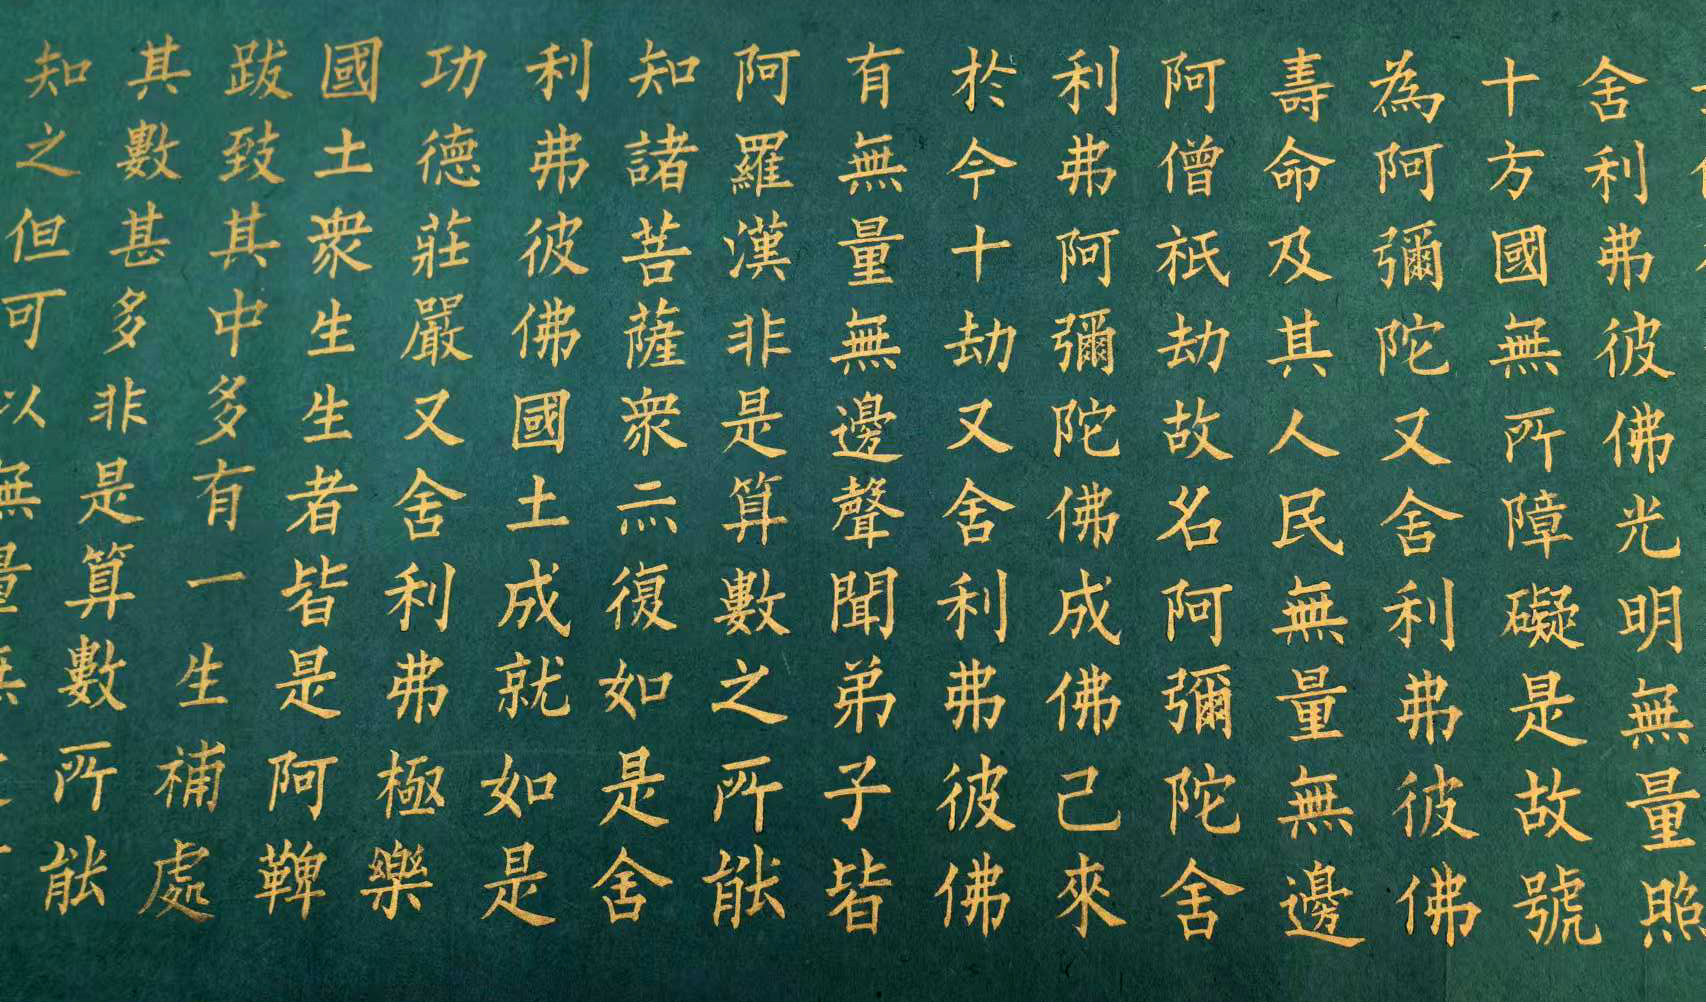 舍利弗彼佛光明無量照
十方國無所障礙是故號
為阿彌陀又舍利弗彼佛
壽命及其人民無量無邊
阿僧祇劫故名阿彌陀舍
利弗阿彌陀佛成佛已來
於今十劫又舍利弗彼佛
有無量無邊聲聞弟子皆
阿羅漢非是算數之所能
知諸菩薩眾亦復如是舍
利弗彼佛國土成就如是
功德莊嚴又舍利弗極樂
國土眾生生者皆是阿鞞
跋致其中多有一生補處
其數甚多非是算數所能
知之但可以無量無